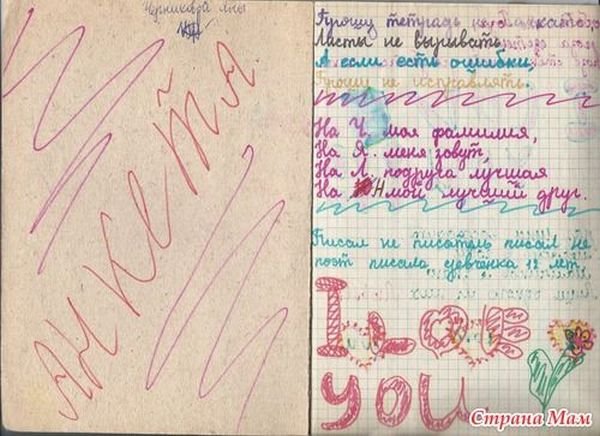 Черникова Яны
АНКЕТА
Прошу тетрадь не
Ласты не вырывать,
А если есть ошибки,
Прошу не исправлять.
На Ч. моя фамилия,
На Я. меня зовут,
На Л. подруга лучшая
На Н мой лучший друг.
Писал не писатель писал не
поэт писала девчёнка 12 лет
I LOVE
YOU
Страна Мам